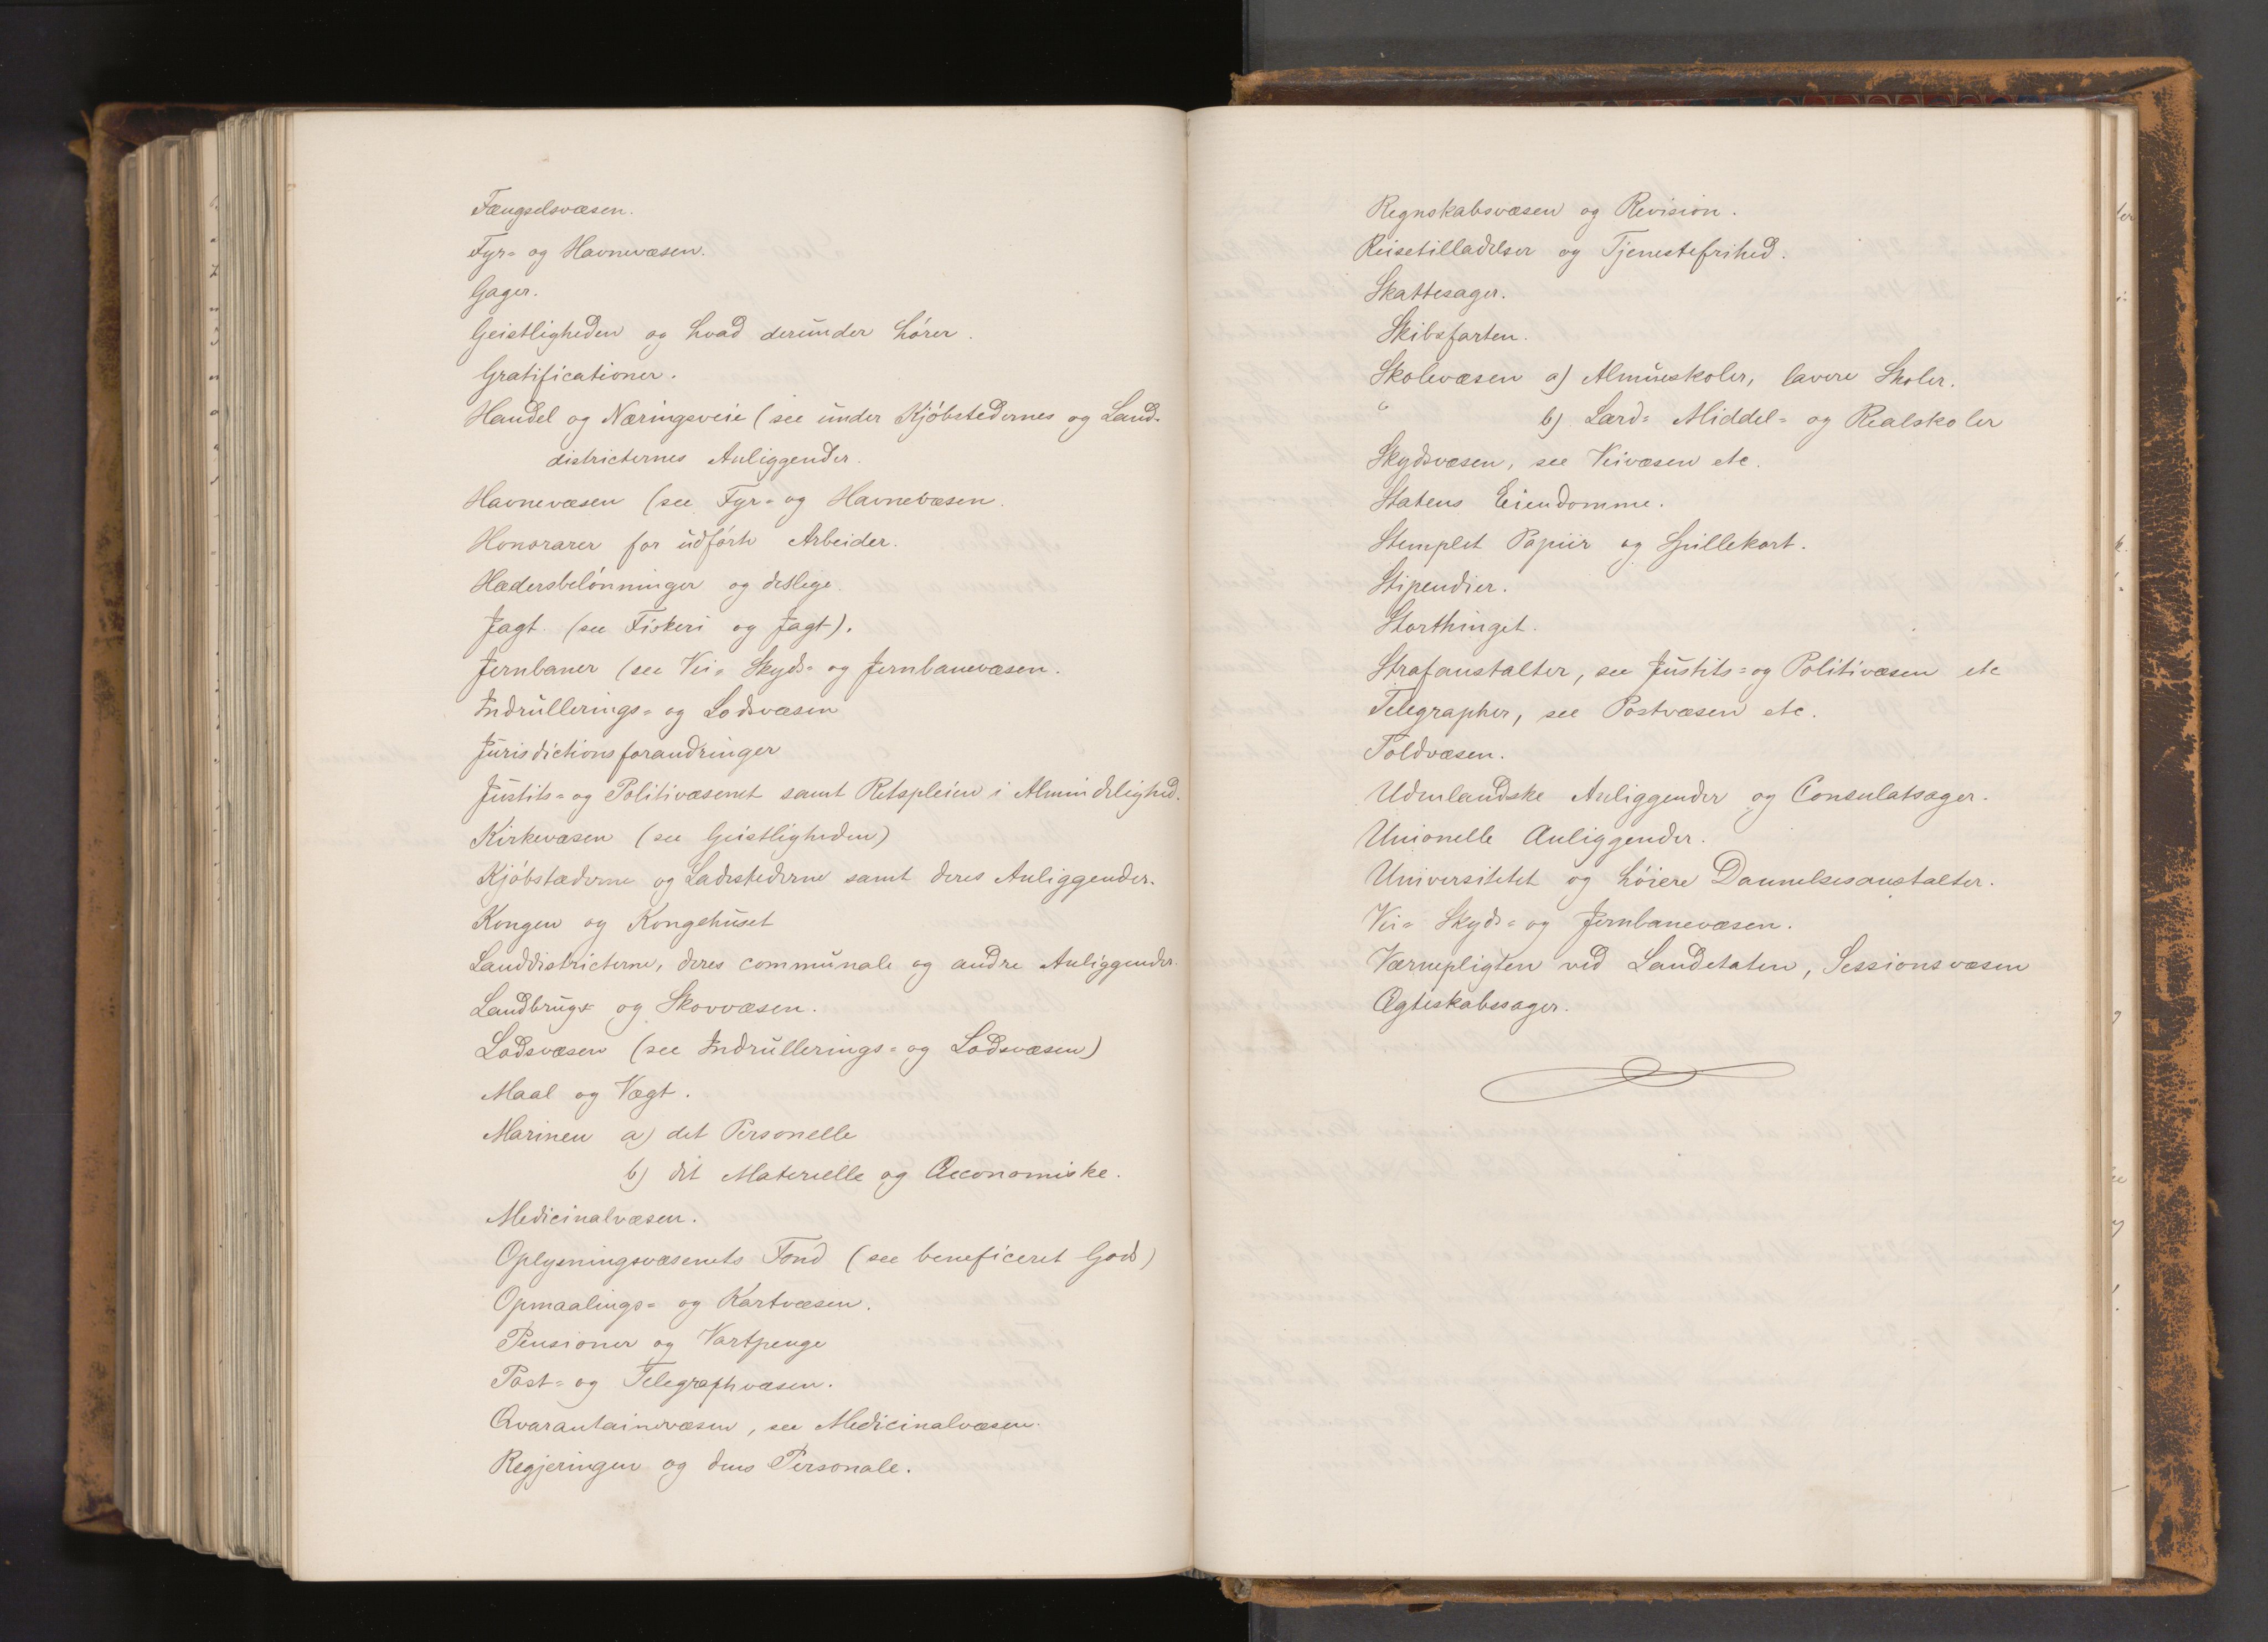 Fængselsvæsen.
Fyr= og Havnevæsen.
Gager.
Geistligheden og hvad derunder hører.
Gratificationer.
Handel og Næringsveie (see under Kjøbstedernes og Land-
districternes Anliggender.
Havnevæsen (see Fyr= og Havnevæsen.
Honorarer for udførte Arbeider.
Hædersbelønninger og deslige.
Jagt. (see Fiskeri og Jagt).
Jernbaner (see Vei= Skyds= og Jernbanevæsen.
Indrullerings= og Lodsvæsen
Jurisdictionsforandringer
Justits= og Politivæsenet samt Retspleien i Almindelighed.
Kirkevæsen (see Geistligheden)
Kjøbstæderne og Ladestederne samt deres Anliggender.
Kongen og Kongehuset
Landdistricterne, deres communale og andre Anliggender.
Landbrugs og Skovvæsen.
Lodsvæsen (see Indrullerings= og Lodsvæsen)
Maal og Vægt.
Marinen a) det Personelle
b) det Materielle og Oeconomiske.
Medicinalvæsen.
Oplysningsvæsenets Fond (see beneficeret Gods)
Opmaalings= og Kartvæsen.
Pensioner og Vartpenge
Post= og Telegraphvæsen.
Qvarantainevæsen, see Medicinalvæsen.
Regjeringen og dens Personale.
Regnskabsvæsen og Revision.
Reisetilladelser og Tjenestefrihed.
Skattesager.
Skibsfarten.
Skolevæsen a) Almueskoler, lavere Skoler.
" b) Lærd= Middel= og Realskoler
Skydsvæsen, see Veivæsen etc.
Statens Eiendomme.
Stemplet Papiir og Spillekort.
Stipendier.
Storthinget.
Strafanstalter, see Justits= og Politivæsen etc
Telegrapher, see Postvæsen etc.
Toldvæsen.
Udenlandske Anliggender og Consulatsager.
Unionelle Anliggender.
Universitetet og høiere Dannelsesanstalter.
Vei= Skyds= og Jernbanevæsen.
Værnepligten ved Landetaten, Sessionsvæsen
Ægteskabssager.